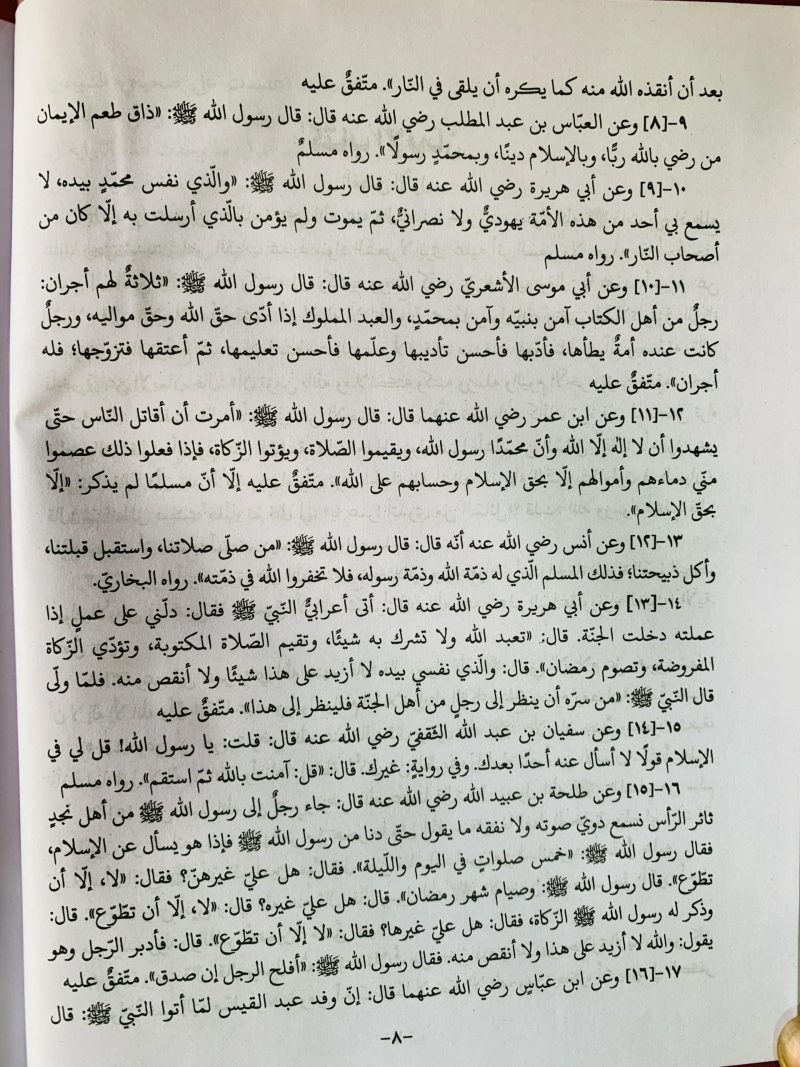 بعد أن أنقذه الله منه كما يكره أن يلقى في النّار». متّفقٌ عليه
٩-[٨] وعن العبّاس بن عبد المطلب رضي الله عنه قال: قال رسول الله ﷺ: «ذاق طعم الإيمان
من رضي بالله ربًّا، وبالإسلام دينًا، وبمحمّدٍ رسولًا». رواه مسلمٌ
١٠-[٩] وعن أبي هريرة رضي الله عنه قال: قال رسول الله ﷺ: «والّذي نفس محمّدٍ بيده، لا
يسمع بي أحد من هذه الأمّة يهوديٌّ ولا نصرانيٌّ، ثمّ يموت ولم يؤمن بالّذي أرسلت به إلّا كان من
أصحاب النّار». رواه مسلم
١١-[١٠] وعن أبي موسى الأشعريّ رضي الله عنه قال: قال رسول الله ﷺ: «ثلاثةٌ لهم أجران:
رجلٌ من أهل الكتاب آمن بنبيّه وآمن بمحمّدٍ، والعبد المملوك إذا أدّى حقّ الله وحقّ مواليه، ورجلٌ
كانت عنده أمةٌ يطأها، فأدّبها فأحسن تأديبها وعلّمها فأحسن تعليمها، ثمّ أعتقها فتزوّجها؛ فله
أجران». متّفقٌ عليه
١٢-[١١] وعن ابن عمر رضي الله عنهما قال: قال رسول الله ﷺ: «أمرت أن أقاتل النّاس حتّى
يشهدوا أن لا إله إلّا الله وأنّ محمّدًا رسول الله، ويقيموا الصّلاة، ويؤتوا الزّكاة، فإذا فعلوا ذلك عصموا
منّي دماءهم وأموالهم إلّا بحق الإسلام وحسابهم على الله». متّفقٌ عليه إلّا أنّ مسلمًا لم يذكر: «إلّا
بحقّ الإسلام».
١٣-[١٢] وعن أنس رضي الله عنه أنّه قال: قال رسول الله ﷺ: «من صلّى صلاتنا، واستقبل قبلتنا،
وأكل ذبيحتنا؛ فذلك المسلم الّذي له ذمّة الله وذمّة رسوله، فلا تخفروا الله في ذمّته». رواه البخاريّ.
١٤-[١٣] وعن أبي هريرة رضي الله عنه قال: أتى أعرابيٌّ النّبيّ ﷺ فقال: دلّني على عملٍ إذا
عملته دخلت الجنّة. قال: «تعبد الله ولا تشرك به شيئًا، وتقيم الصّلاة المكتوبة، وتؤدّي الزّكاة
المفروضة، وتصوم رمضان». قال: والّذي نفسي بيده لا أزيد على هذا شيئًا ولا أنقص منه. فلمّا ولّى
قال النّبيّ ﷺ: «من سرّه أن ينظر إلى رجلٍ من أهل الجنّة فلينظر إلى هذا». متّفقٌ عليه
١٥-[١٤] وعن سفيان بن عبد الله الثّقفيّ رضي الله عنه قال: قلت: يا رسول الله! قل لي في
الإسلام قولًا لا أسأل عنه أحدًا بعدك. وفي روايةٍ: غيرك. قال: «قل: آمنت بالله ثمّ استقم». رواه مسلم
١٦-[١٥] وعن طلحة بن عبيد الله رضي الله عنه قال: جاء رجلٌ إلى رسول الله ﷺ من أهل نجدٍ
ثائر الرّأس نسمع دويّ صوته ولا نفقه ما يقول حتّى دنا من رسول الله ﷺ فإذا هو يسأل عن الإسلام،
فقال رسول الله ﷺ: «خمس صلواتٍ في اليوم واللّيلة». فقال: هل عليّ غيرهنّ؟ فقال: «لا، إلّا أن
تطّوّع». قال رسول الله ﷺ: وصيام شهر رمضان». قال: هل عليّ غيره؟ قال: «لا، إلّا أن تطّوّع». قال:
وذكر له رسول الله ﷺ الزّكاة، فقال: هل عليّ غيرها؟ فقال: «لا إلّا أن تطّوّع». قال: فأدبر الرّجل وهو
يقول: والله لا أزيد على هذا ولا أنقص منه. فقال رسول الله ﷺ: «أفلح الرجل إن صدق». متّفقٌ عليه
١٧-[١٦] وعن ابن عبّاسٍ رضي الله عنهما قال: إنّ وفد عبد القيس لمّا أتوا النّبيّ ﷺ: قال
-٨-